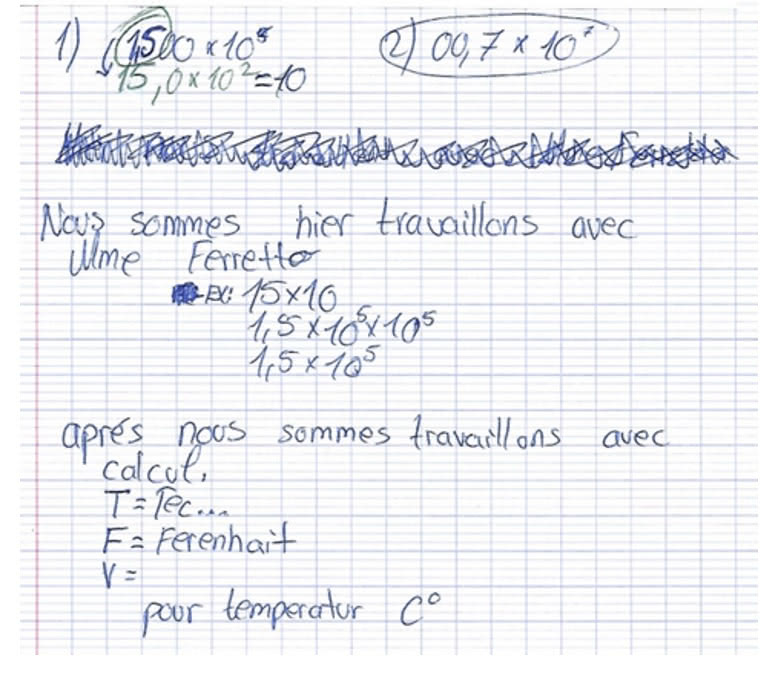 1) 1,500 x 10⁸ 2) 00,7 x 10⁷
15,0 x 10² = 10
Nous sommes hier travaillons avec
Mme Ferretto
Ex: 15x10
1,5 x 10⁵ x 10⁵
1,5 x 10⁵
aprés nous sommes travaillons avec
calcul.
T = Tec...
F = Ferenhait
V =
pour temperatur C°